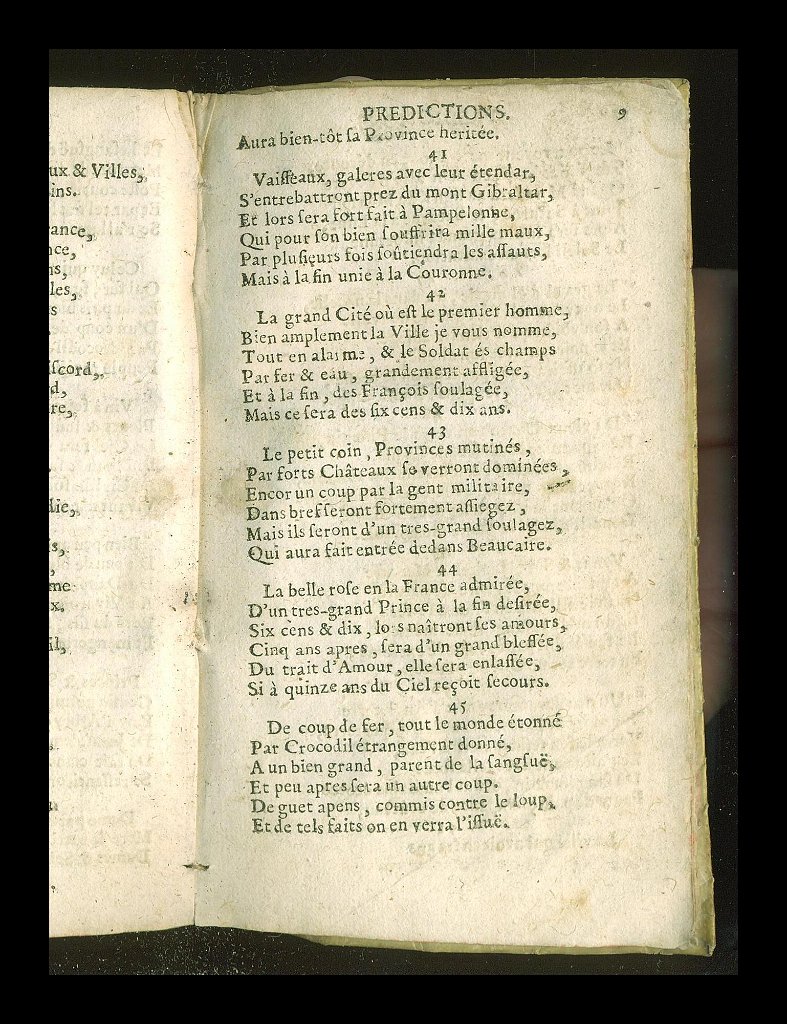 ux & Villes,
ins.
rance,
nce,
ns,
les,
s
iſcord,
d,
re,
lie,
s,
me
x.
il,
PREDICTIONS. 9
Aura bien-tôt ſa Province heritée.
41
Vaiſſeaux, galeres avec leur étendar,
S'entrebattront prez du mont Gibraltar,
Et lors ſera fort fait à Pampelonne,
Qui pour ſon bien ſouffrira mille maux,
Par pluſieurs fois ſoûtiendra les aſſauts,
Mais à la fin unie à la Couronne.
42
La grand Cité où eſt le premier homme,
Bien amplement la Ville je vous nomme,
Tout en alarme, & le Soldat és champs
Par fer & eau, grandement affligée,
Et à la fin, des François ſoulagée,
Mais ce ſera des ſix cens & dix ans.
43
Le petit coin, Provinces mutinés,
Par forts Châteaux ſe verront dominées,
Encor un coup par la gent militaire,
Dans bref ſeront fortement aſſiegez,
Mais ils ſeront d'un tres-grand ſoulagez,
Qui aura fait entrée dedans Beaucaire.
44
La belle roſe en la France admirée,
D'un tres-grand Prince à la fin deſirée,
Six cens & dix, lors naîtront ſes amours,
Cinq ans apres, ſera d'un grand bleſſée,
Du trait d'Amour, elle ſera enlaſſée,
Si à quinze ans du Ciel reçoit ſecours.
45
De coup de fer, tout le monde étonné
Par Crocodil étrangement donné,
A un bien grand, parent de la ſangſuë,
Et peu apres ſera un autre coup.
De guet apens, commis contre le loup,
Et de tels faits on en verra l'iſſuë.